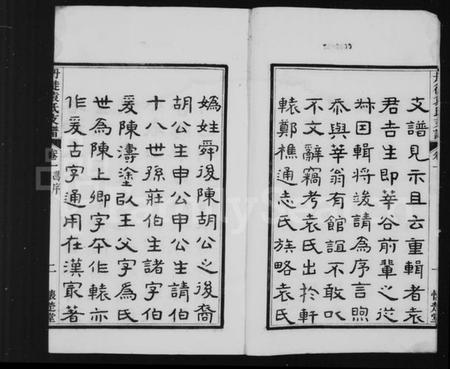 支譜見示且云重輯者袁
君吉生即華谷前輩之從
姪因輯將竣請為序言照
忝與華翁有館誼不敢以
不文辭竊考袁氏出於軒
轅鄭樵通志氏族略袁氏
媯姓舜後陳胡公之後裔
胡公生申公申公生請伯
十八世孫莊伯生諸字伯
爰陳濤塗以王父字為氏
世為陳上卿字本作轅亦
作爰古字通用在漢最著
丹徒袁氏支譜
卷一 舊序
二
懷楚堂